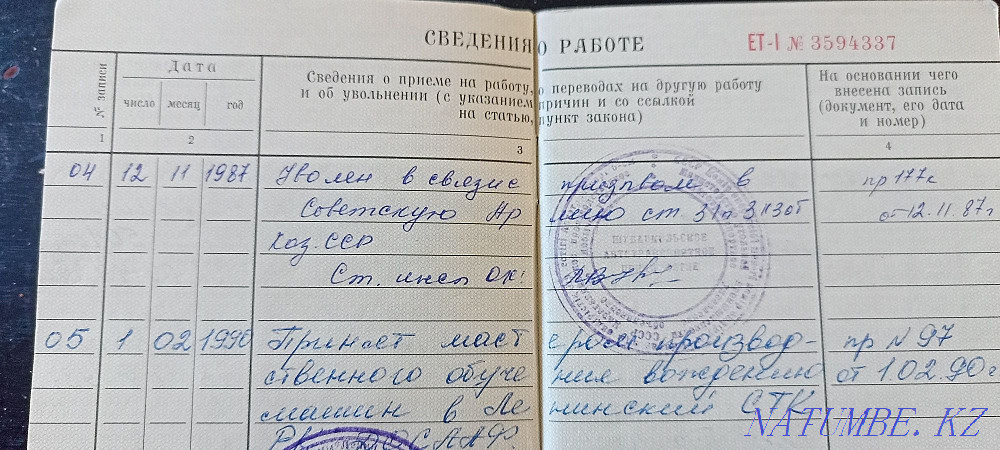 СВЕДЕНИЯ О РАБОТЕ ЕТ-I № 3594337
№ записи
Дата
число месяц год
Сведения о приеме на работу, о переводах на другую работу
и об увольнении (с указанием причин и со ссылкой
на статью, пункт закона)
На основании чего
внесена запись
(документ, его дата
и номер)
1 2 3 4
04 12 11 1987 Уволен в связи с призывом в пр 177к
Советскую Ар мию ст. 31 п 3 КЗоТ от 12.11.87г
Каз. ССР
Ст. инсп ОК:
05 1 02 1990 Принят маст ером производ- пр N 97
ственного обуче ния вождению от 1.02.90 г
машин в Ле нинский СТК
ДОСААФ
NATUMBE.KZ